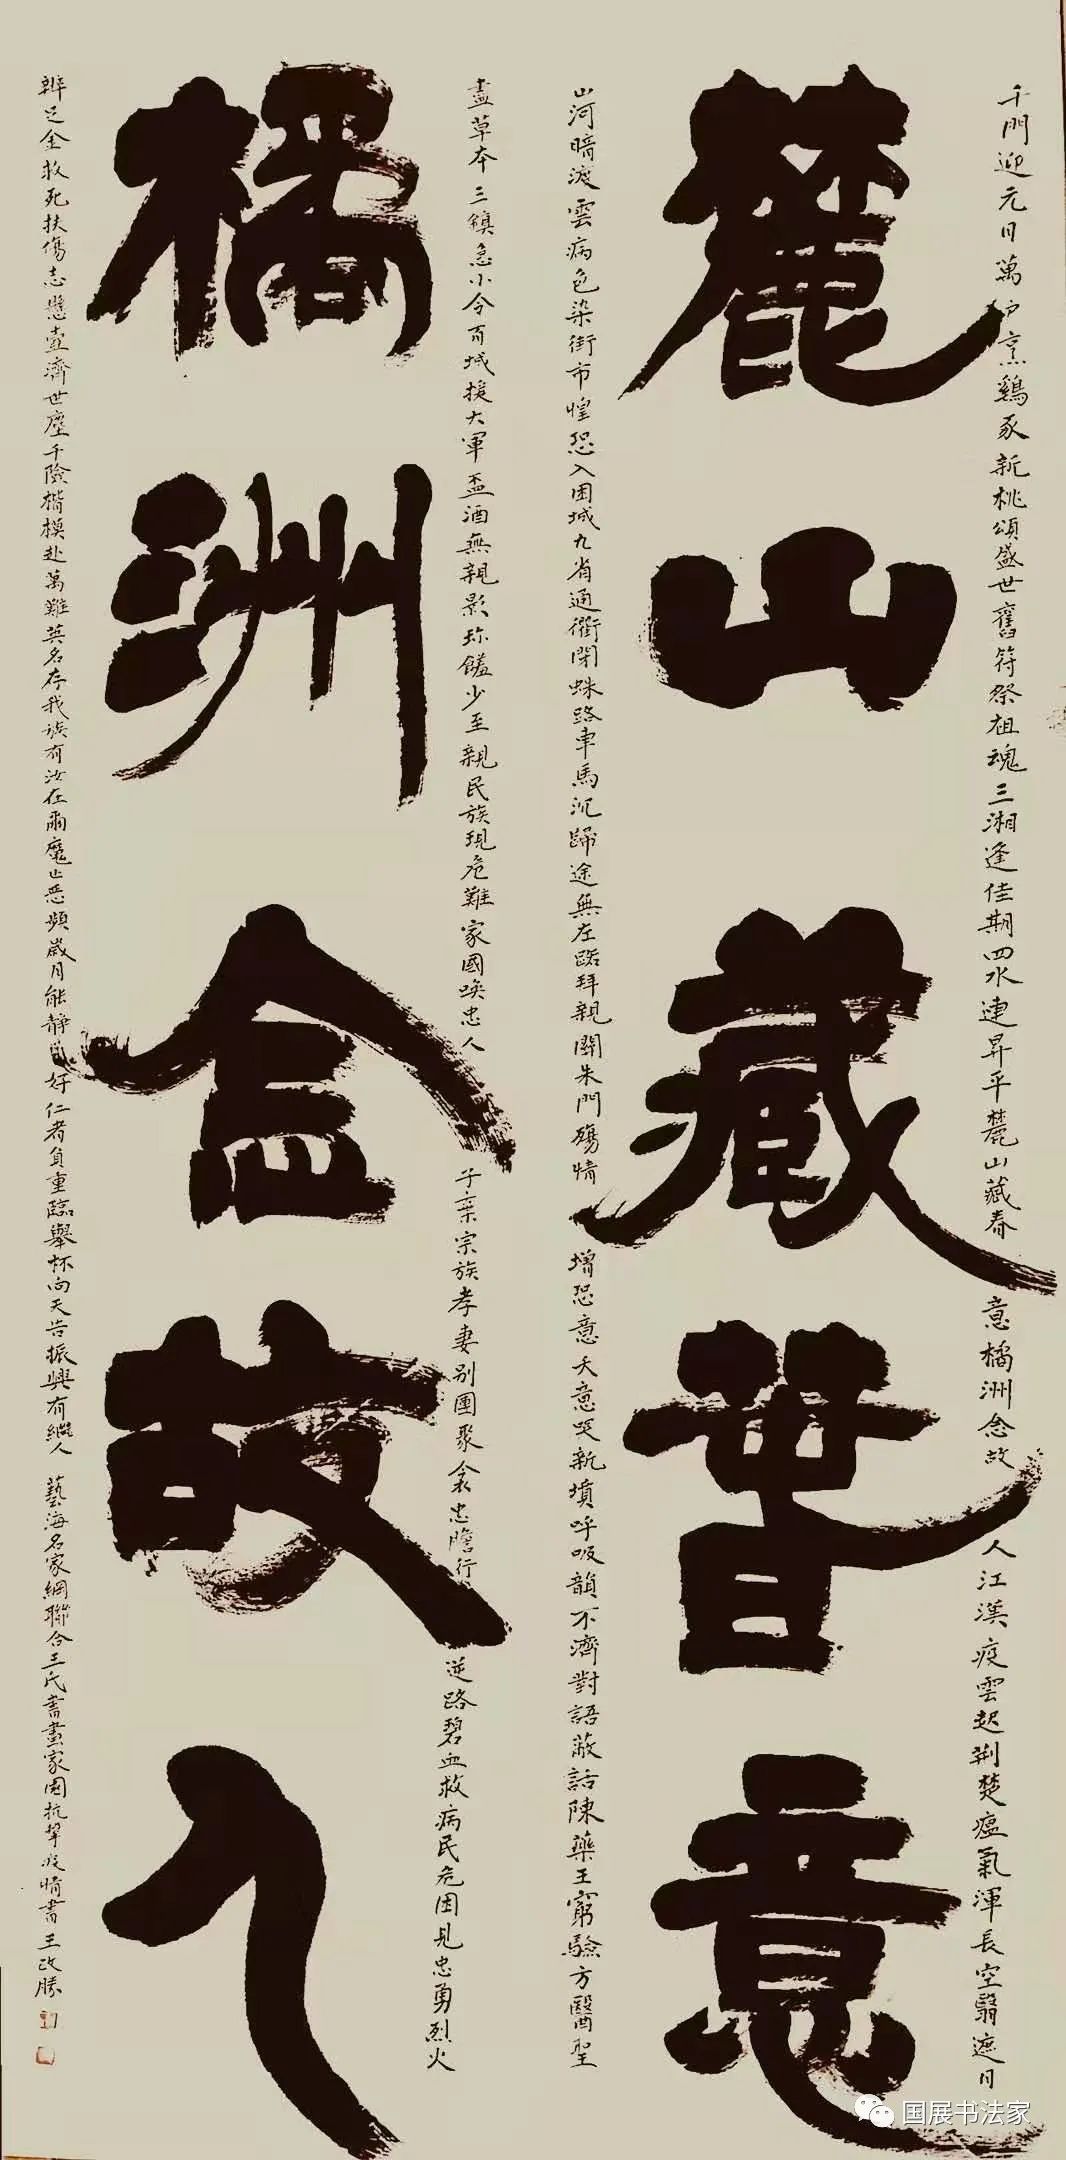 麓山藏春意
橘洲念故人
千門迎元日萬户烹鷄豕新桃頌盛世舊符祭祖魂三湘逢佳期四水連昇平麓山藏春意橘洲念故人江漢疫雲起荆楚瘟氣渾長空翳遮日
山河暗渡雲病色染街市惶恐入困城九省通衢閉蛛路車馬沉歸途無左路拜親關朱門殤情增恐意天意哭新墳呼吸韻不濟對語蔽話陳藥王窮驗方醫聖
盡草本三鎮急小令百城援大軍盃酒無親影珎饈少至親民族現危難家國唤忠人子棄宗族孝妻别團聚衾忠膽行逆路碧血救病民危困見忠勇烈火
辨足金救死扶傷志懸壺濟世塵千險楷模赴萬難英名存我族有汝在爾魔止恶頻歲月能静好仁者負重臨舉杯向天告振興有繼人
藝海名家網聯合王氏書畫家園抗擊疫情書王改勝
国展书法家